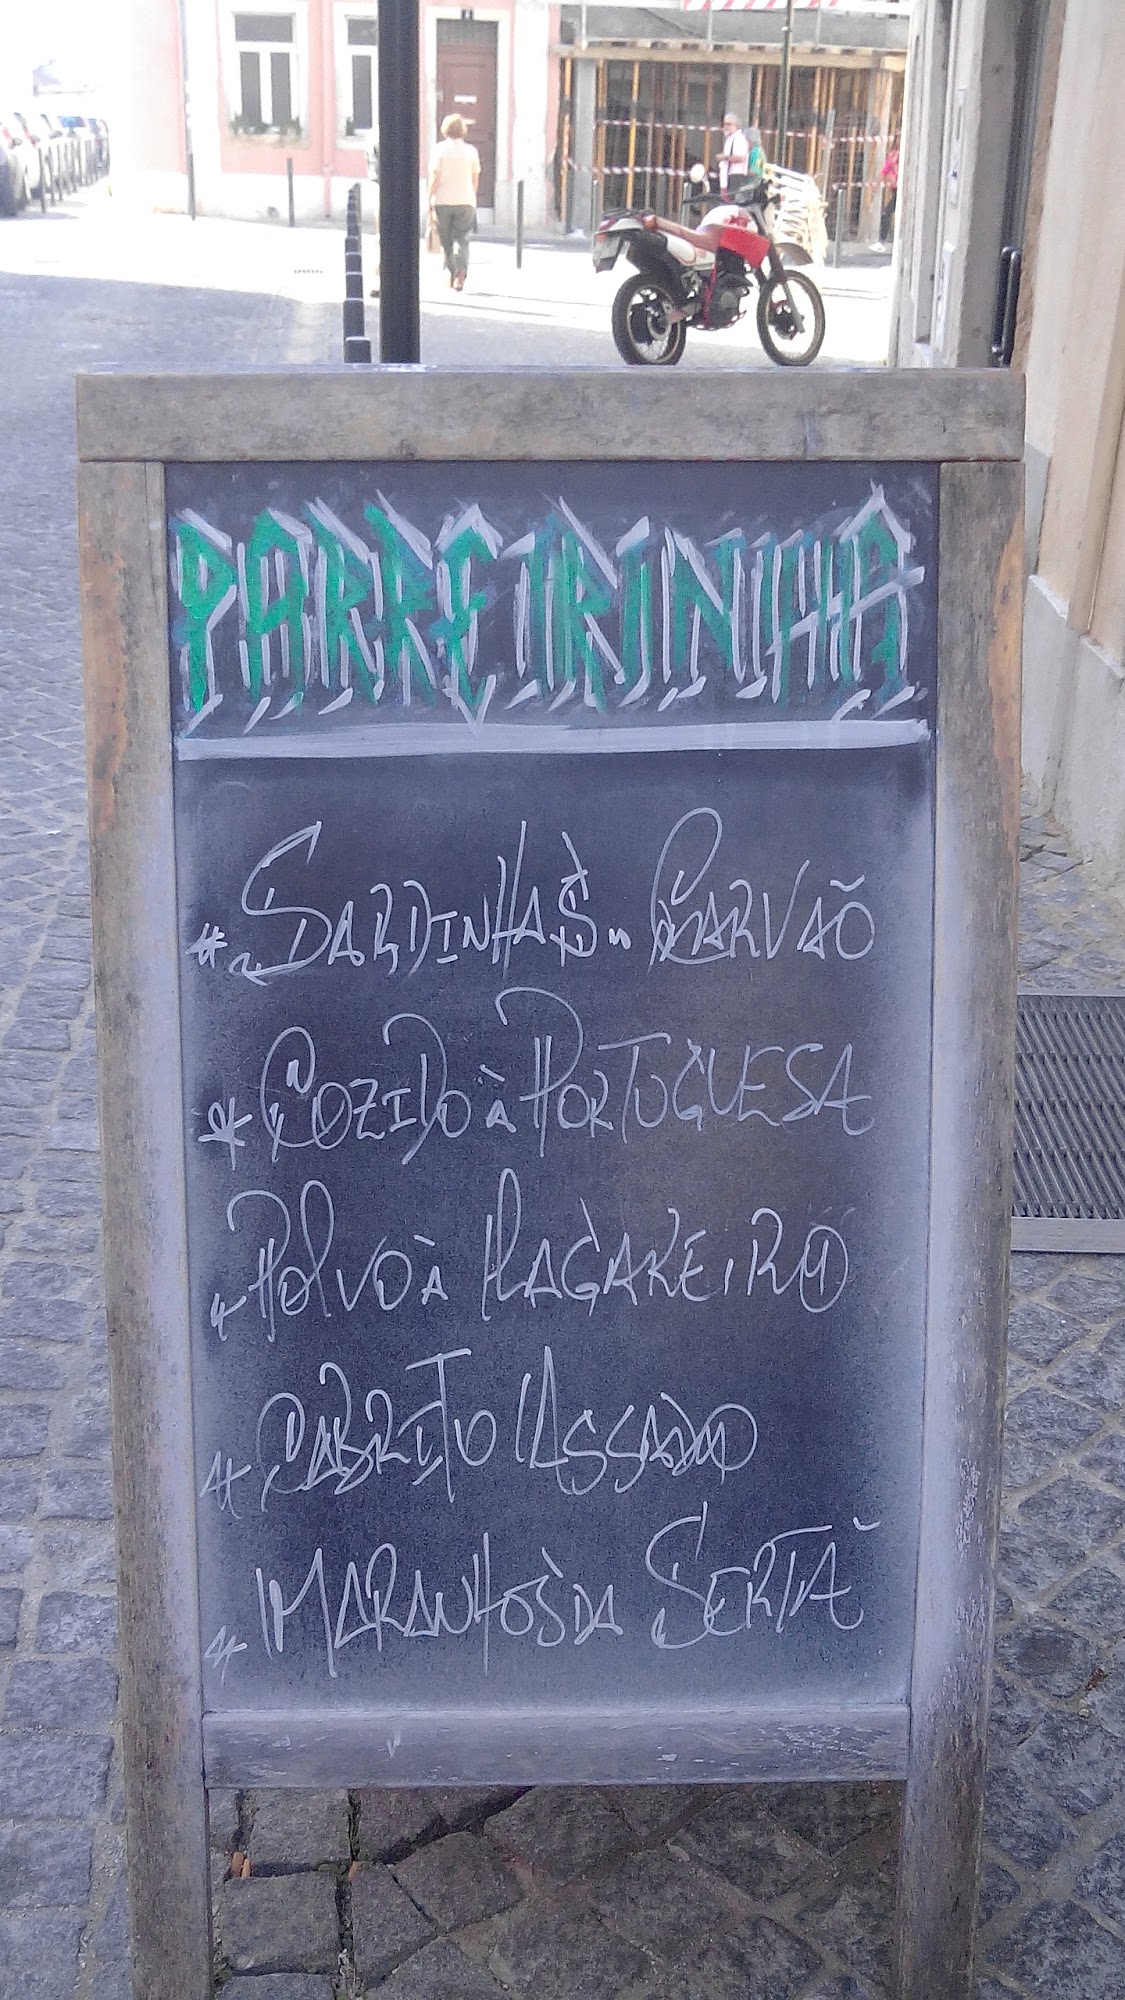 PARREIRINHA
* SARDINHAS N. CARVÃO
* COZIDO À PORTUGUESA
* POLVO À LAGAREIRO
* CABRITO ASSADO
* MARANHOS DA SERTÃ